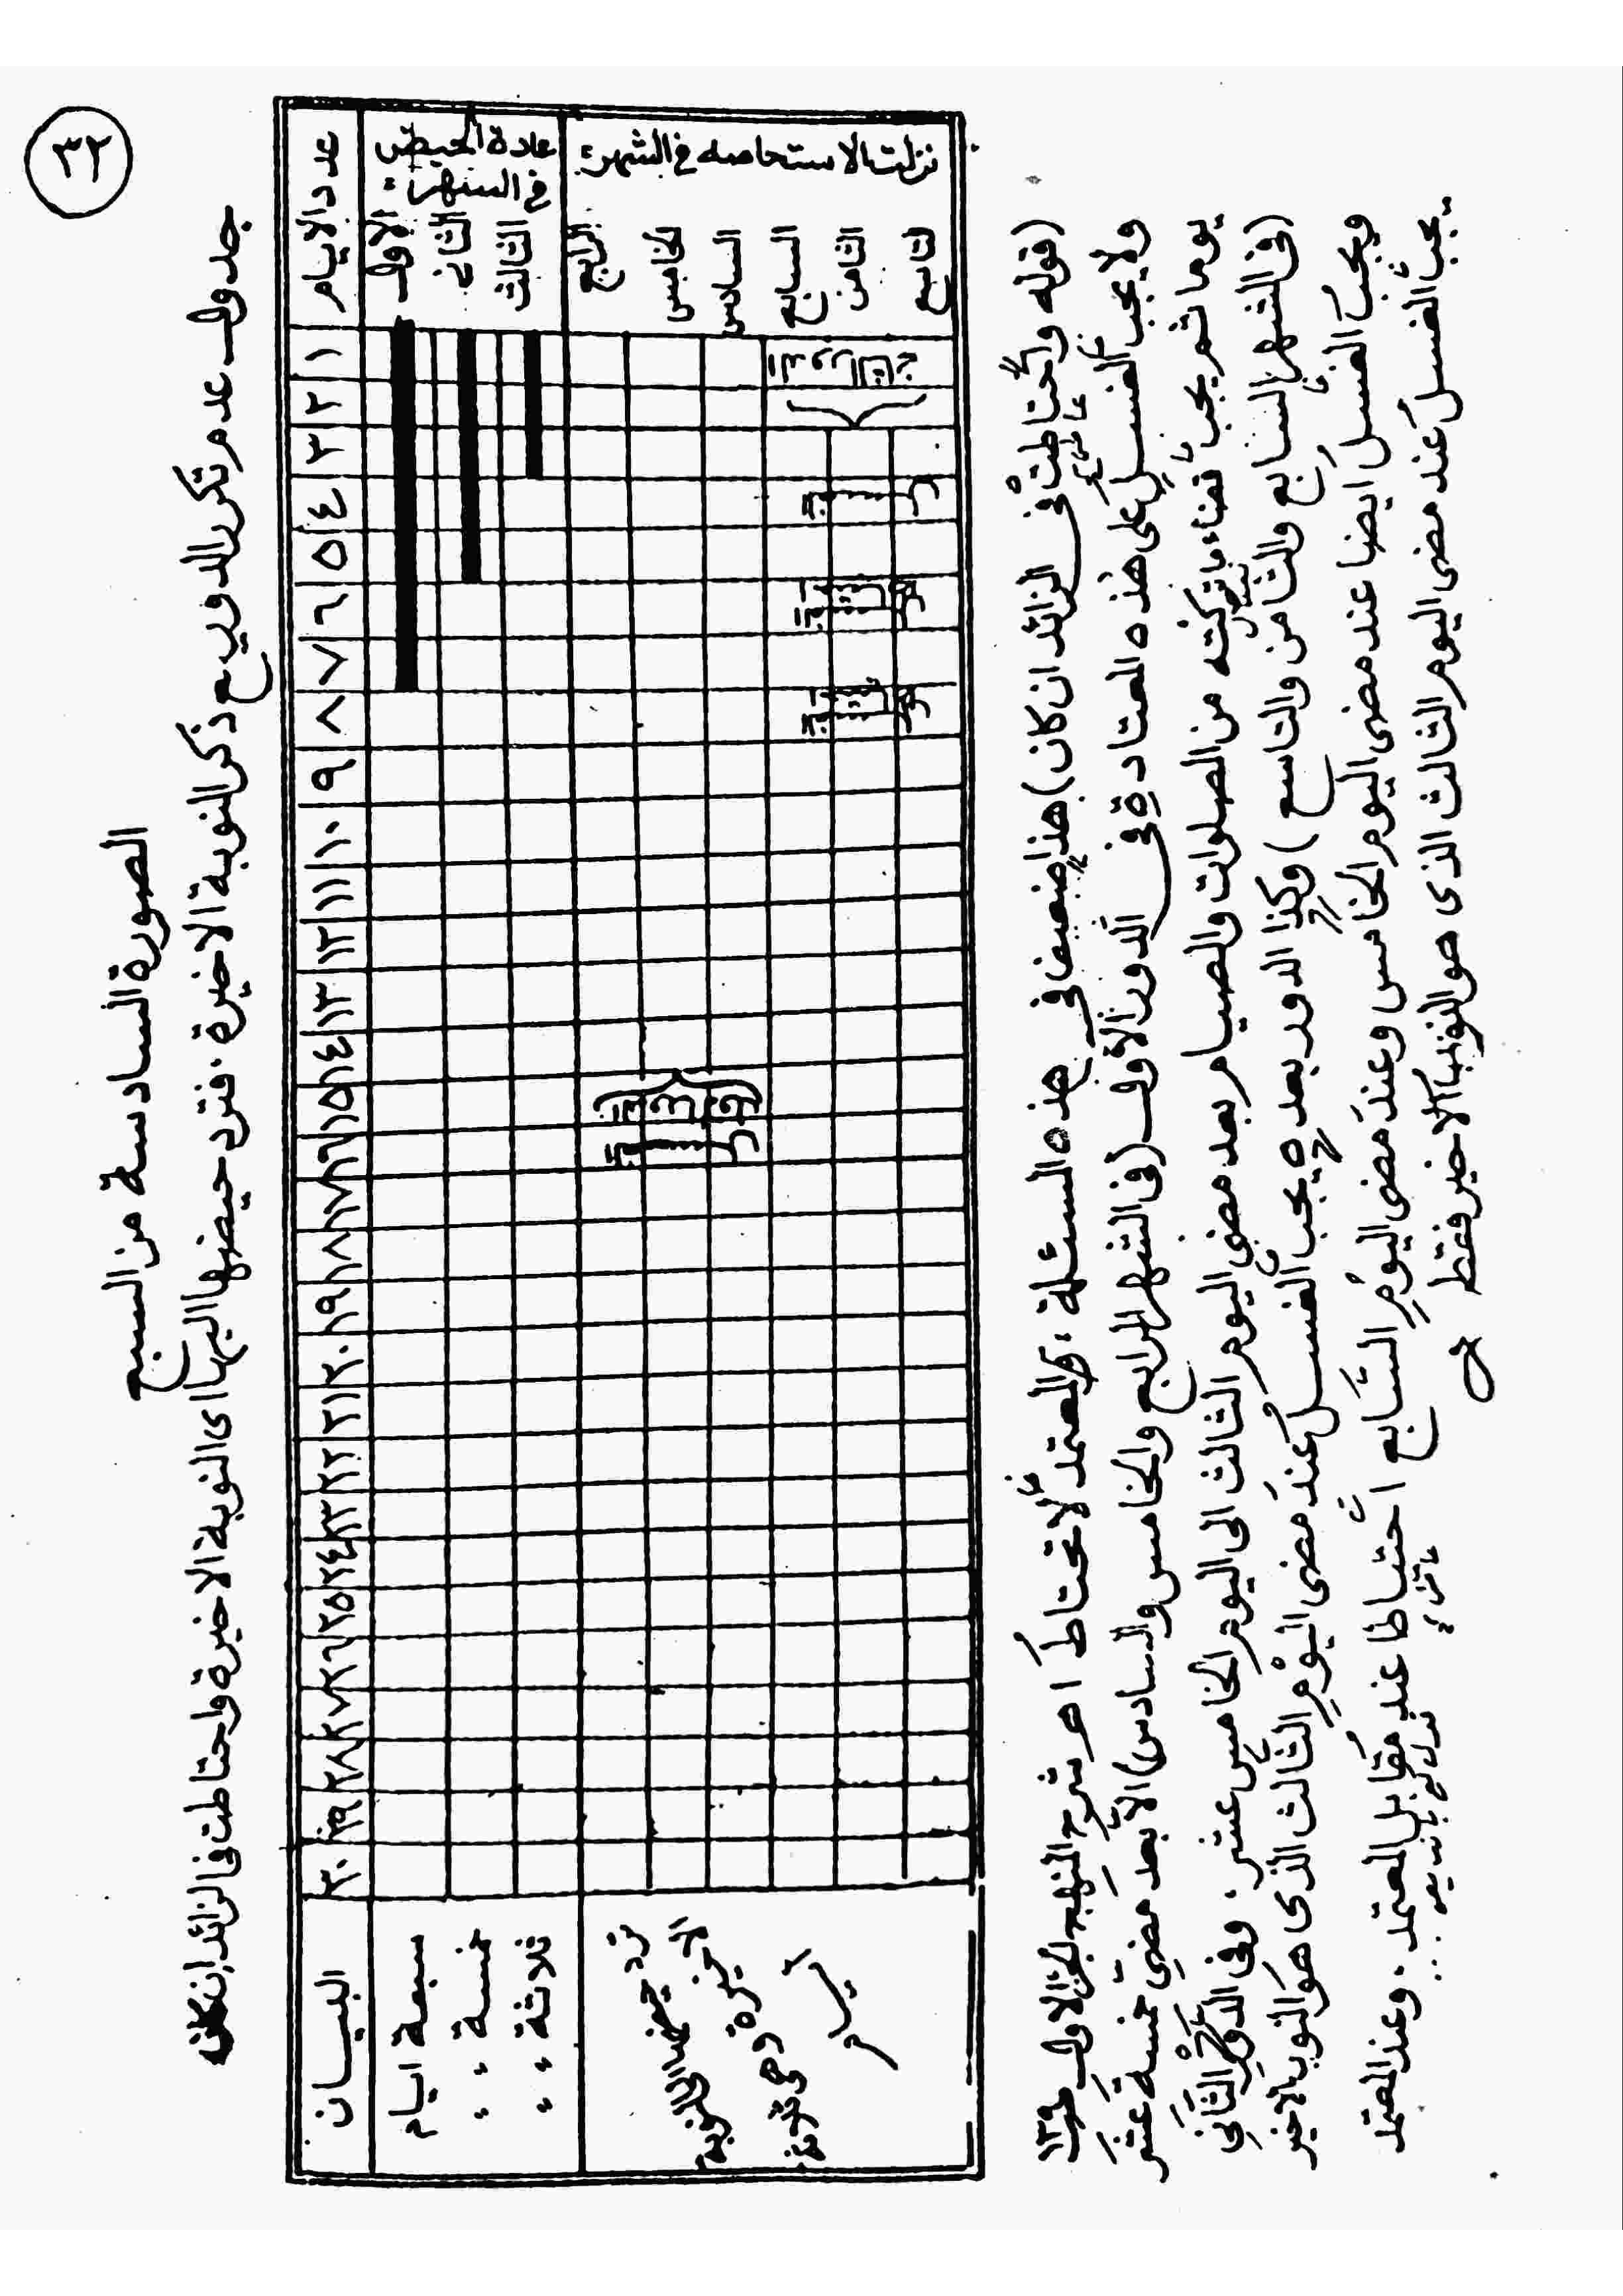 ٣٢
الصورة السادسة من السبع
جدول عدم تكرر الدور مع ذكر النوبة الاخيرة . فترد حيضها اليها اى النوبة الاخيرة واحتاطت فى الزائد ان كان
عدد الايام ١ ٢ ٣ ٤ ٥ ٦ ٧ ٨ ٩ ١٠ ١١ ١٢ ١٣ ١٤ ١٥ ١٦ ١٧ ١٨ ١٩ ٢٠ ٢١ ٢٢ ٢٣ ٢٤ ٢٥ ٢٦ ٢٧ ٢٨ ٢٩ ٣٠ البيان
عادة الحيض فى الشهر:
الاول سبعة ايام
الثانى خمسة " "
الثالث ثلاثة " "
نزلت الاستحاضه فى الشهر:
الرابع
الخامس
السادس
السابع
الثامن
التاسع
ترد حيضها الى النوبة
الاخيرة وهى ثلاثة
ايام
(قوله واحتاطت فى الزائد ان كان) هذا ضعيف فى هذه المسئلة ، والمعتمد لا تحتاط اهـ شرح المنهج لجزء الاول ١٣٩
ولا يجب الغسل على هذه المعتادة فى الدور الاول (فى الشهر الرابع والخامس والسادس) الا بعد مضى خمسة عشر
يوما ثم يجب قضاء ما تركته من الصلوات والصيام بعد مضى اليوم الثالث الى اليوم الخامس عشر . وفى الدور الثانى
(فى الشهر السابع والثامن والتاسع) وكذا الدور بعده يجب الغسل عند مضى اليوم الثالث الذى هو النوب الاخير
ويجب الغسل ايضا عند مضى اليوم الخامس وعند مضى اليوم السابع احتياطا عند مقابل المعتمد . وعند المعتمد
يجب الغسل عند مضى اليوم الثالث الذى هو النوب الاخير فقط